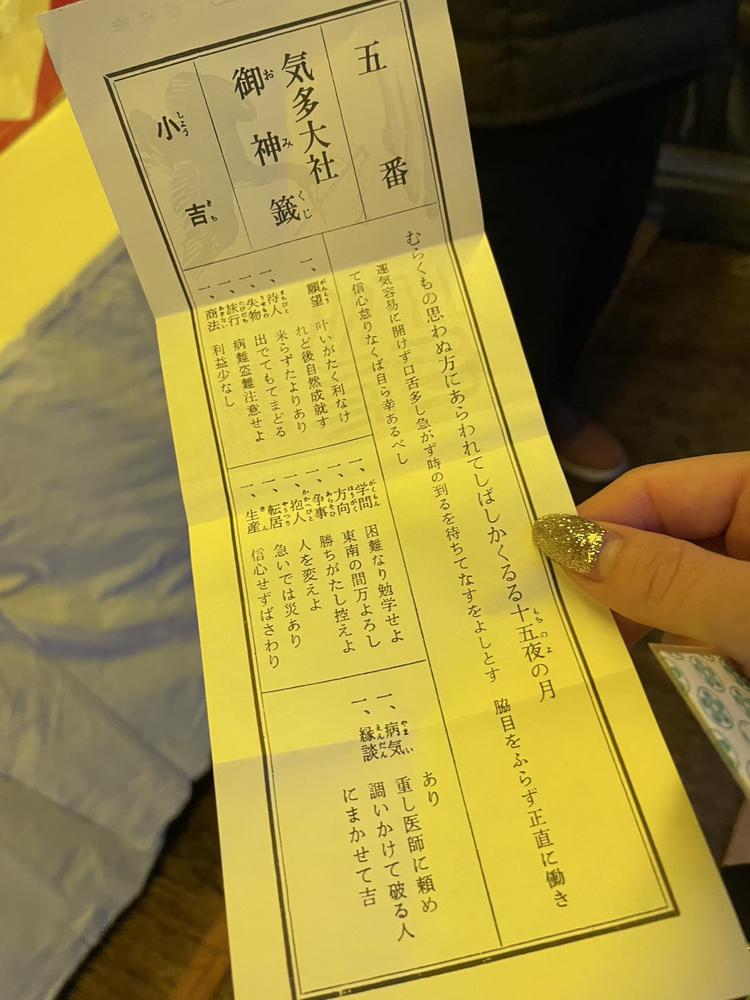 五番
気多大社
御神籤
小吉
むらくもの思わぬ方にあらわれてしばしかくるる十五夜の月
運気容易に開けず口舌多し急がず時の到るを待ちてなすをよしとす 脇目をふらず正直に働き
て信心怠りなくば自ら幸あるべし
一、願望 叶いがたく利なけ
れど後自然成就す
一、待人 来らずたよりあり
一、失物 出でてもてまどる
一、旅行 病難盗難注意せよ
一、商法 利益少なし
一、学問 困難なり勉学せよ
一、方向 東南の間万よろし
一、争事 勝ちがたし控えよ
一、抱人 人を変えよ
一、転居 急いでは災あり
一、生産 信心せずばさわり
あり
一、病気 重し医師に頼め
一、縁談 調いかけて破る人
にまかせて吉